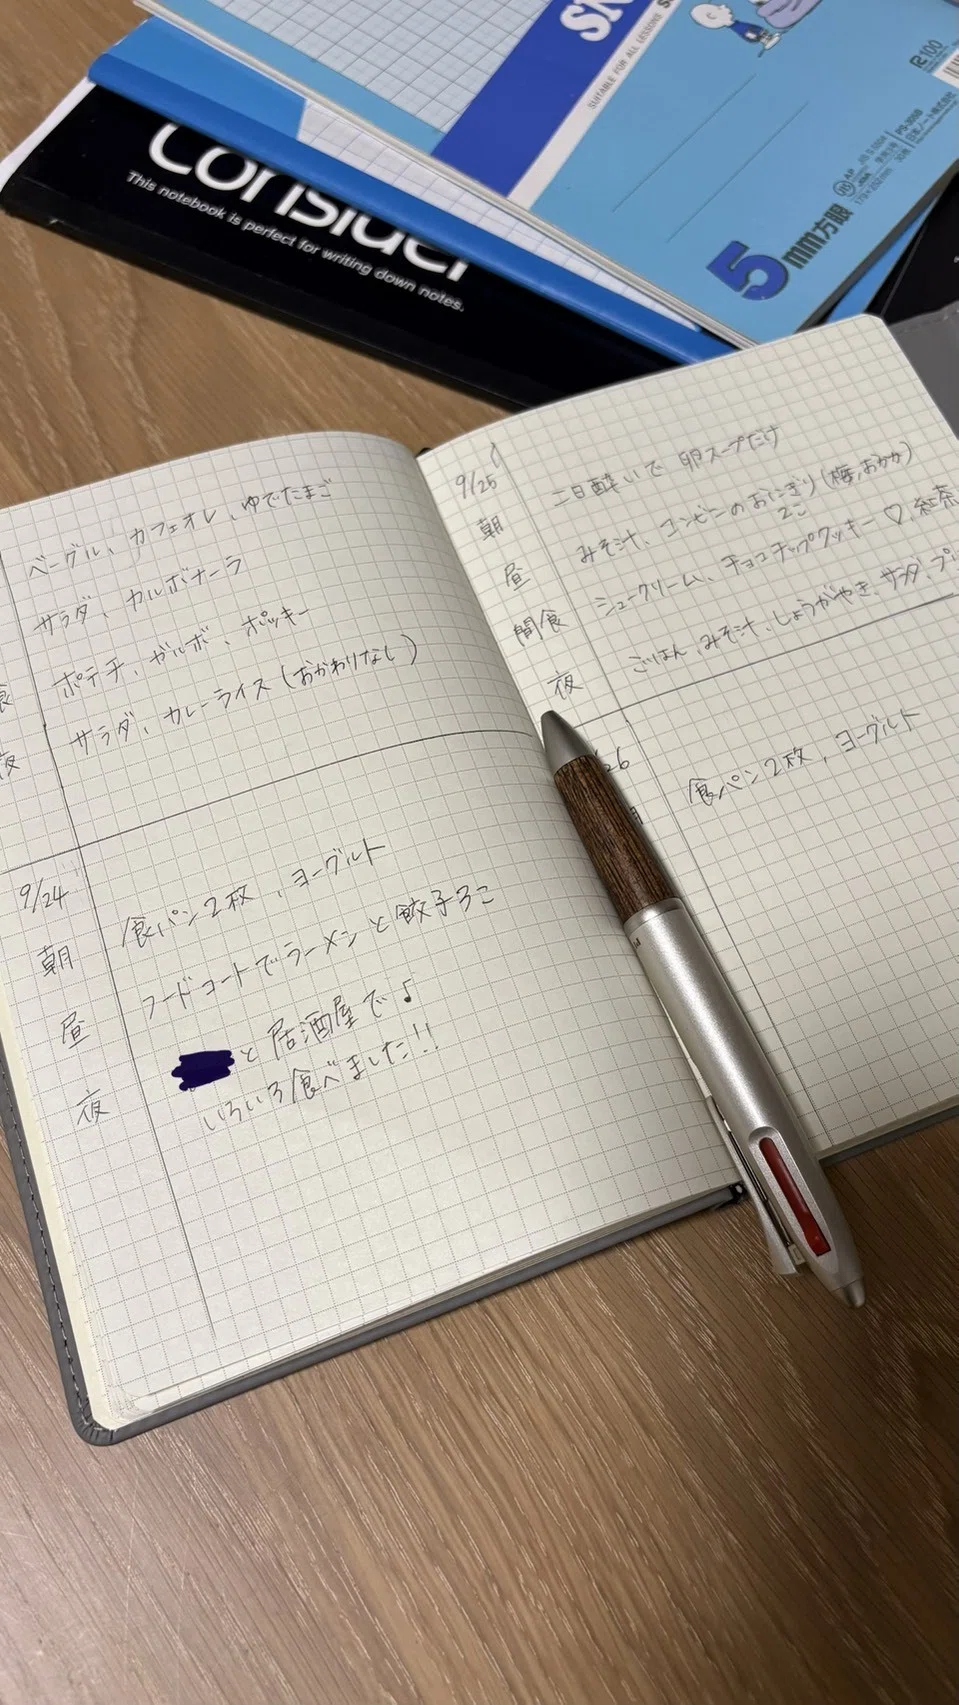 Consider
This notebook is perfect for writing down notes.
SUITABLE FOR ALL LESSONS
5mm方眼
日本ノート株式会社
ベーグル、カフェオレ、ゆでたまご
サラダ、カルボナーラ
食 ポテチ、ガルボ、ポッキー
夜 サラダ、カレーライス(おかわりなし)
9/24
朝 食パン2枚、ヨーグルト
昼 フードコートでラーメンと餃子3こ
夜 と居酒屋で♪
いろいろ食べました!!
9/25
朝 二日酔いで 卵スープだけ
昼 みそ汁、コンビニのおにぎり(梅,おかか)
2こ
間食 シュークリーム、チョコチップクッキー♡、紅茶
夜 ごはん、みそ汁、しょうがやき、サラダ、プリ
26
食パン2枚、ヨーグルト